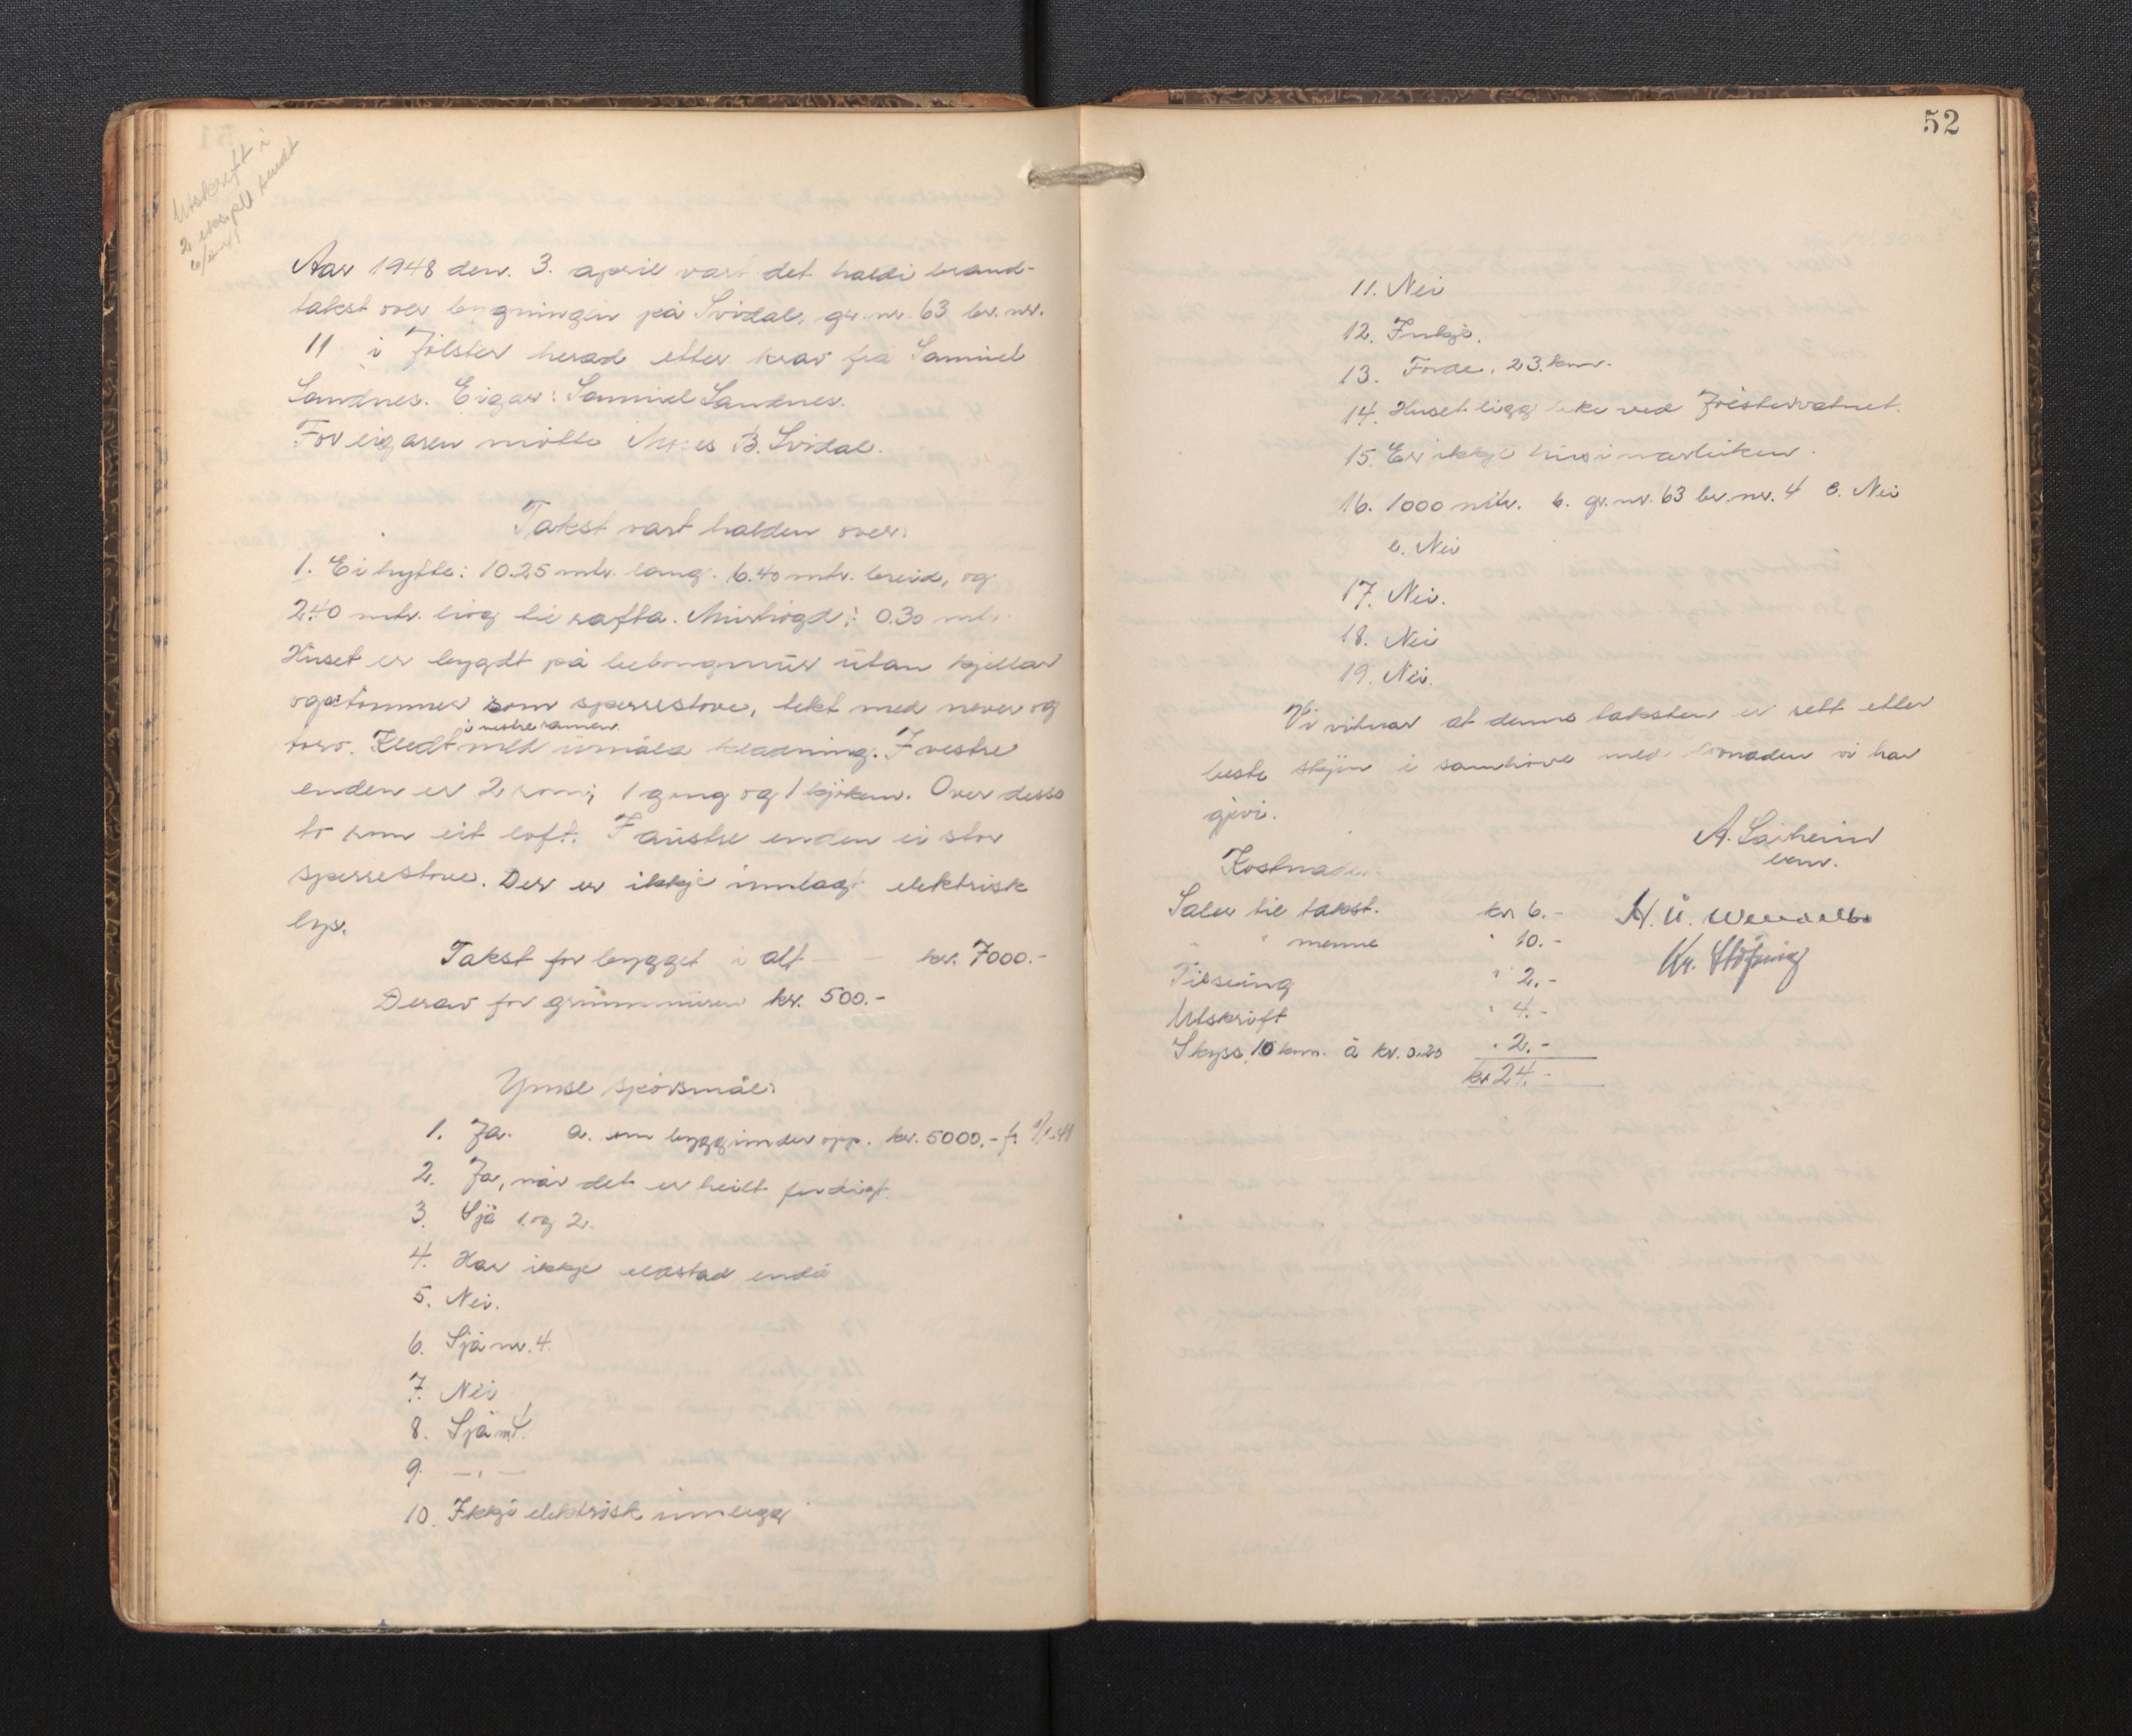 Utskrift i
2 eksempl sendt
Aar 1948 den. 3. april vart det haldi brand-
takst over bygningen på Svidal, gr. nr. 63 br. nr.
11 i Jølster herad etter krav frå Samuel
Sandnes. Eigar: Samuel Sandnes.
For eigaren møtte B. Svidal.
Takst vart halden over:
1. Ei hytte: 10.25 mtr. lang. 6.40 mtr. breid, og
2.40 mtr. høg til rafta. Murhøgd: 0.30 mtr.
Huset er bygdt på betongmur utan kjellar
og tømmer som sperrestove, tekt med never og
torv. Kledt med umåla kledning. I vestre
enden er 2 rom; 1 gang og 1 kjøken. Over desse
to rom eit loft. I austre enden ei stor
sperrestove. Der er ikkje innlagt elektrisk
lys.
Takst for bygget i alt kr. 7000.-
Derav for grunnmuren kr. 500.-
Ymse spørsmål:
1. Ja. a. um bygg under opp. kr. 5000.-
2. Ja, når det er heilt ferdigt
3. Sjå 1. og 2.
4. Har ikkje eldstad endå
5. Nei.
6. Sjå nr. 4.
7. Nei
8. Sjå nr. 4.
9. — " —
10. Ikkje elektrisk innlegg
52
11. Nei
12. Inkje.
13. Førde, 23. km.
14. Huset ligg like ved Jølstervatnet.
15. Er ikkje hus i nærleiken.
16. 1000 mtr. b. gr. nr. 63 br. nr. 4 c. Nei
e. Nei
17. Nei.
18. Nei
19. Nei.
Vi vitnar at denne taksten er sett etter
beste skjøn i samhøve med lovnaden vi har
gjevi.
Kostnader:
Salær til takst. kr 6.-
" " menne " 10.-
Tilseing " 2.-
Utskrift " 4.-
Skyss 10 km. à kr. 0.20 " 2.-
kr 24.-